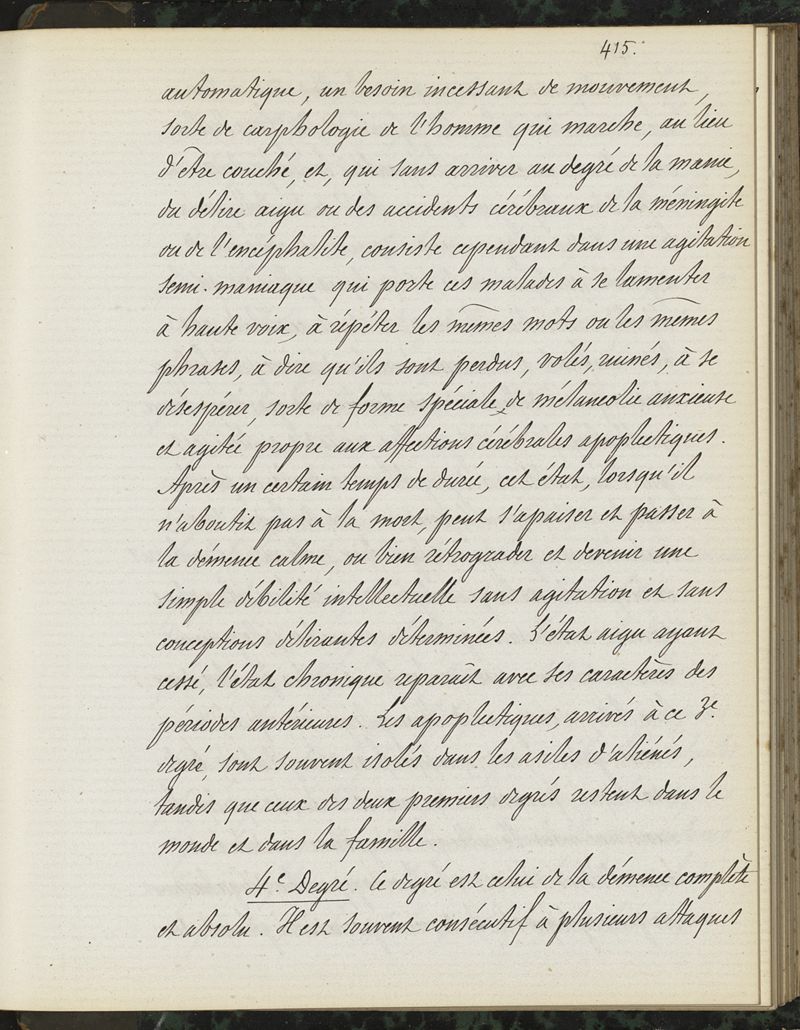 415.
automatique, un besoin incessant de mouvement,
sorte de carphologie de l'homme qui marche, au lieu
d'être couché, et, qui sans arriver au degré de la manie,
du délire aigu ou des accidents cérébraux de la méningite
ou de l'encéphalite, consiste cependant dans une agitation
semi-maniaque qui porte ces malades à se lamenter
à haute voix, à répéter les mêmes mots ou les mêmes
phrases, à dire qu'ils sont perdus, volés, ruinés, à se
désespérer, sorte de forme spéciale de mélancolie anxieuse
et agitée propre aux affections cérébrales apoplectiques.
Après un certain temps de durée, cet état, lorsqu'il
n'aboutit pas à la mort, peut s'apaiser et passer à
la démence calme, ou bien rétrograder et devenir une
simple débilité intellectuelle sans agitation et sans
conceptions délirantes déterminées. L'état aigu ayant
cessé, l'état chronique reparaît avec ses caractères des
périodes antérieures. Les apoplectiques, arrivés à ce 3e
degré, sont souvent isolés dans les asiles d'aliénés,
tandis que ceux des deux premiers degrés restent dans le
monde et dans la famille.
4e Degré. Ce degré est celui de la démence complète
et absolu. Il est souvent consécutif à plusieurs attaques